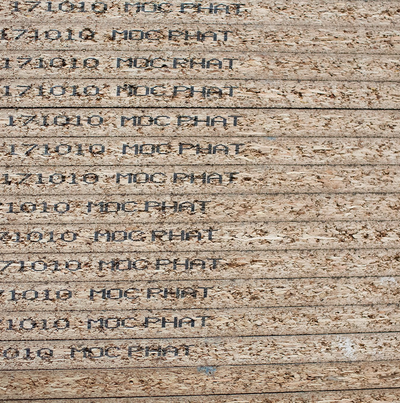 171010 MOC PHAT
171010 MOC PHAT
171010 MOC PHAT
171010 MOC PHAT
171010 MOC PHAT
171010 MOC PHAT
171010 MOC PHAT
1010 MOC PHAT
71010 MOC PHAT
71010 MOC PHAT
1010 MOC PHAT
1010 MOC PHAT
010 MOC PHAT